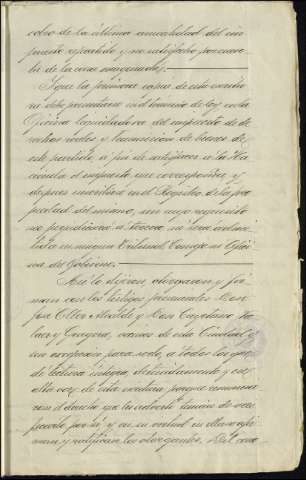 cobro de la última anualidad del im-
puesto repartido y no satisfecho por
de la casa enagenada.
Y que la primera copia de esta escritu-
ra debe presentarse en el termino de ley en la
Oficina liquidadora del impuesto de de-
rechos reales y transmision de bienes de
este partido, á fin de satisfacer á la Ha-
cienda el impuesto que corresponda, y
despues inscribirse en el Registro de la pro-
piedad del mismo, sin cuyo requisito
no perjudicará á tercero, ni será admi-
tida en ningun Tribunal, Consejo ni Ofici-
na del Gobierno.
Así lo dijeron, otorgaron y fir-
man con los testigos presenciales Don
José Oller y Don Cayetano
y Gregori, vecinos de esta Ciudad y
sin excepcion para serlo, á todos los que
di lectura íntegra, distintamente y en
alta voz, de esta escritura porque renuncia-
ron el derecho que les advertí tenian de veri-
ficarlo por sí, y en su contenido se
man y ratifican los otorgantes. Del cono-